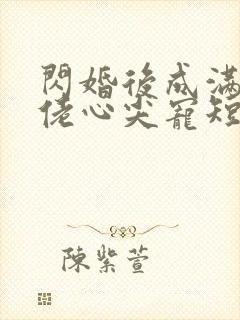 閃婚後成滿
佬心尖寵短
陳紫萱